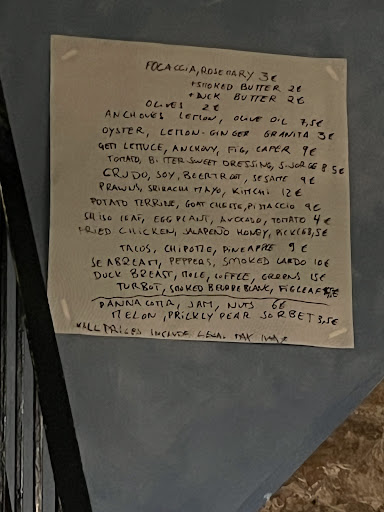 FOCACCIA, ROSEMARY 3€
+ SMOKED BUTTER 2€
+ DUCK BUTTER 2€
OLIVES 2€
ANCHOVIES LEMON, OLIVE OIL 7,5€
OYSTER, LEMON-GINGER GRANITA 3€
GEM LETTUCE, ANCHOVY, FIG, CAPER 9€
TOMATO, BITTERSWEET DRESSING, 8,5€
CRUDO, SOY, BEERTROOT, SESAME 9€
PRAWNS, SRIRACHA MAYO, KIMCHI 12€
POTATO TERRINE, GOAT CHEESE, PISTACCIO 9€
SHISO LEAF, EGGPLANT, AVOCADO, TOMATO 4€
FRIED CHICKEN, JALAPEÑO HONEY, 8,5€
TACOS, CHIPOTLE, PINEAPPLE 9€
SEABREAM, PEPPERS, SMOKED LARDO 10€
DUCK BREAST, MOLE, COFFEE, GREENS 15€
TURBOT, SMOKED BEURRE BLANC, FIGLEAF
PANNACOTTA, JAM, NUTS 6€
MELON, PRICKLY PEAR SORBET 3,5€
*ALL PRICES INCLUDE LEGAL TAX